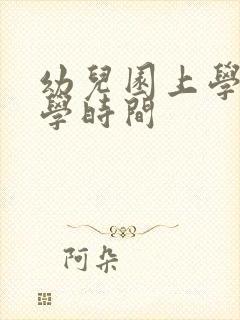 幼兒園上學
學時間
阿朵